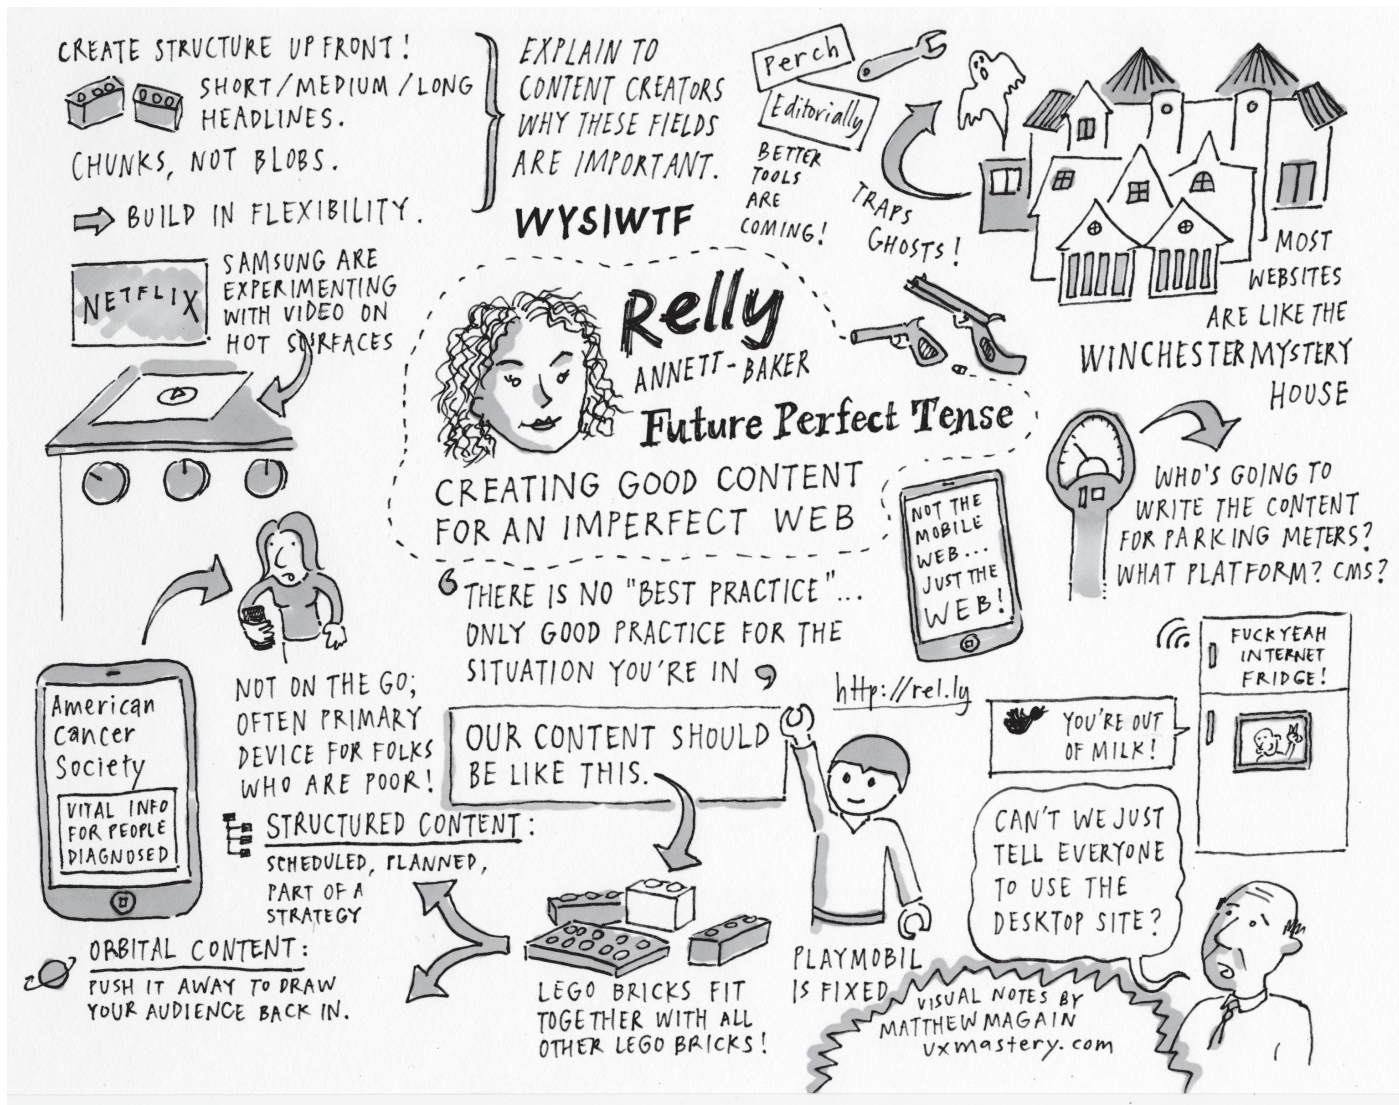 CREATE STRUCTURE UP FRONT!
SHORT/MEDIUM/LONG
HEADLINES.
CHUNKS, NOT BLOBS.
BUILD IN FLEXIBILITY.
EXPLAIN TO
CONTENT CREATORS
WHY THESE FIELDS
ARE IMPORTANT.
WYSIWTF
Perch
Editorially
BETTER
TOOLS
ARE
COMING!
TRAPS
GHOSTS!
MOST
WEBSITES
ARE LIKE THE
WINCHESTER MYSTERY
HOUSE
NETFLIX
SAMSUNG ARE
EXPERIMENTING
WITH VIDEO ON
HOT SURFACES
Relly
ANNETT-BAKER
Future Perfect Tense
CREATING GOOD CONTENT
FOR AN IMPERFECT WEB
NOT THE
MOBILE
WEB...
JUST THE
WEB!
WHO'S GOING TO
WRITE THE CONTENT
FOR PARKING METERS?
WHAT PLATFORM? CMS?
‘THERE IS NO "BEST PRACTICE"...
ONLY GOOD PRACTICE FOR THE
SITUATION YOU'RE IN’
http://rel.ly
FUCK YEAH
INTERNET
FRIDGE!
YOU'RE OUT
OF MILK!
American
Cancer
Society
VITAL INFO
FOR PEOPLE
DIAGNOSED
NOT ON THE GO;
OFTEN PRIMARY
DEVICE FOR FOLKS
WHO ARE POOR!
OUR CONTENT SHOULD
BE LIKE THIS.
STRUCTURED CONTENT:
SCHEDULED, PLANNED,
PART OF A
STRATEGY
ORBITAL CONTENT:
PUSH IT AWAY TO DRAW
YOUR AUDIENCE BACK IN.
LEGO BRICKS FIT
TOGETHER WITH ALL
OTHER LEGO BRICKS!
PLAYMOBIL
IS FIXED
CAN'T WE JUST
TELL EVERYONE
TO USE THE
DESKTOP SITE?
VISUAL NOTES BY
MATTHEW MAGAIN
uxmastery.com